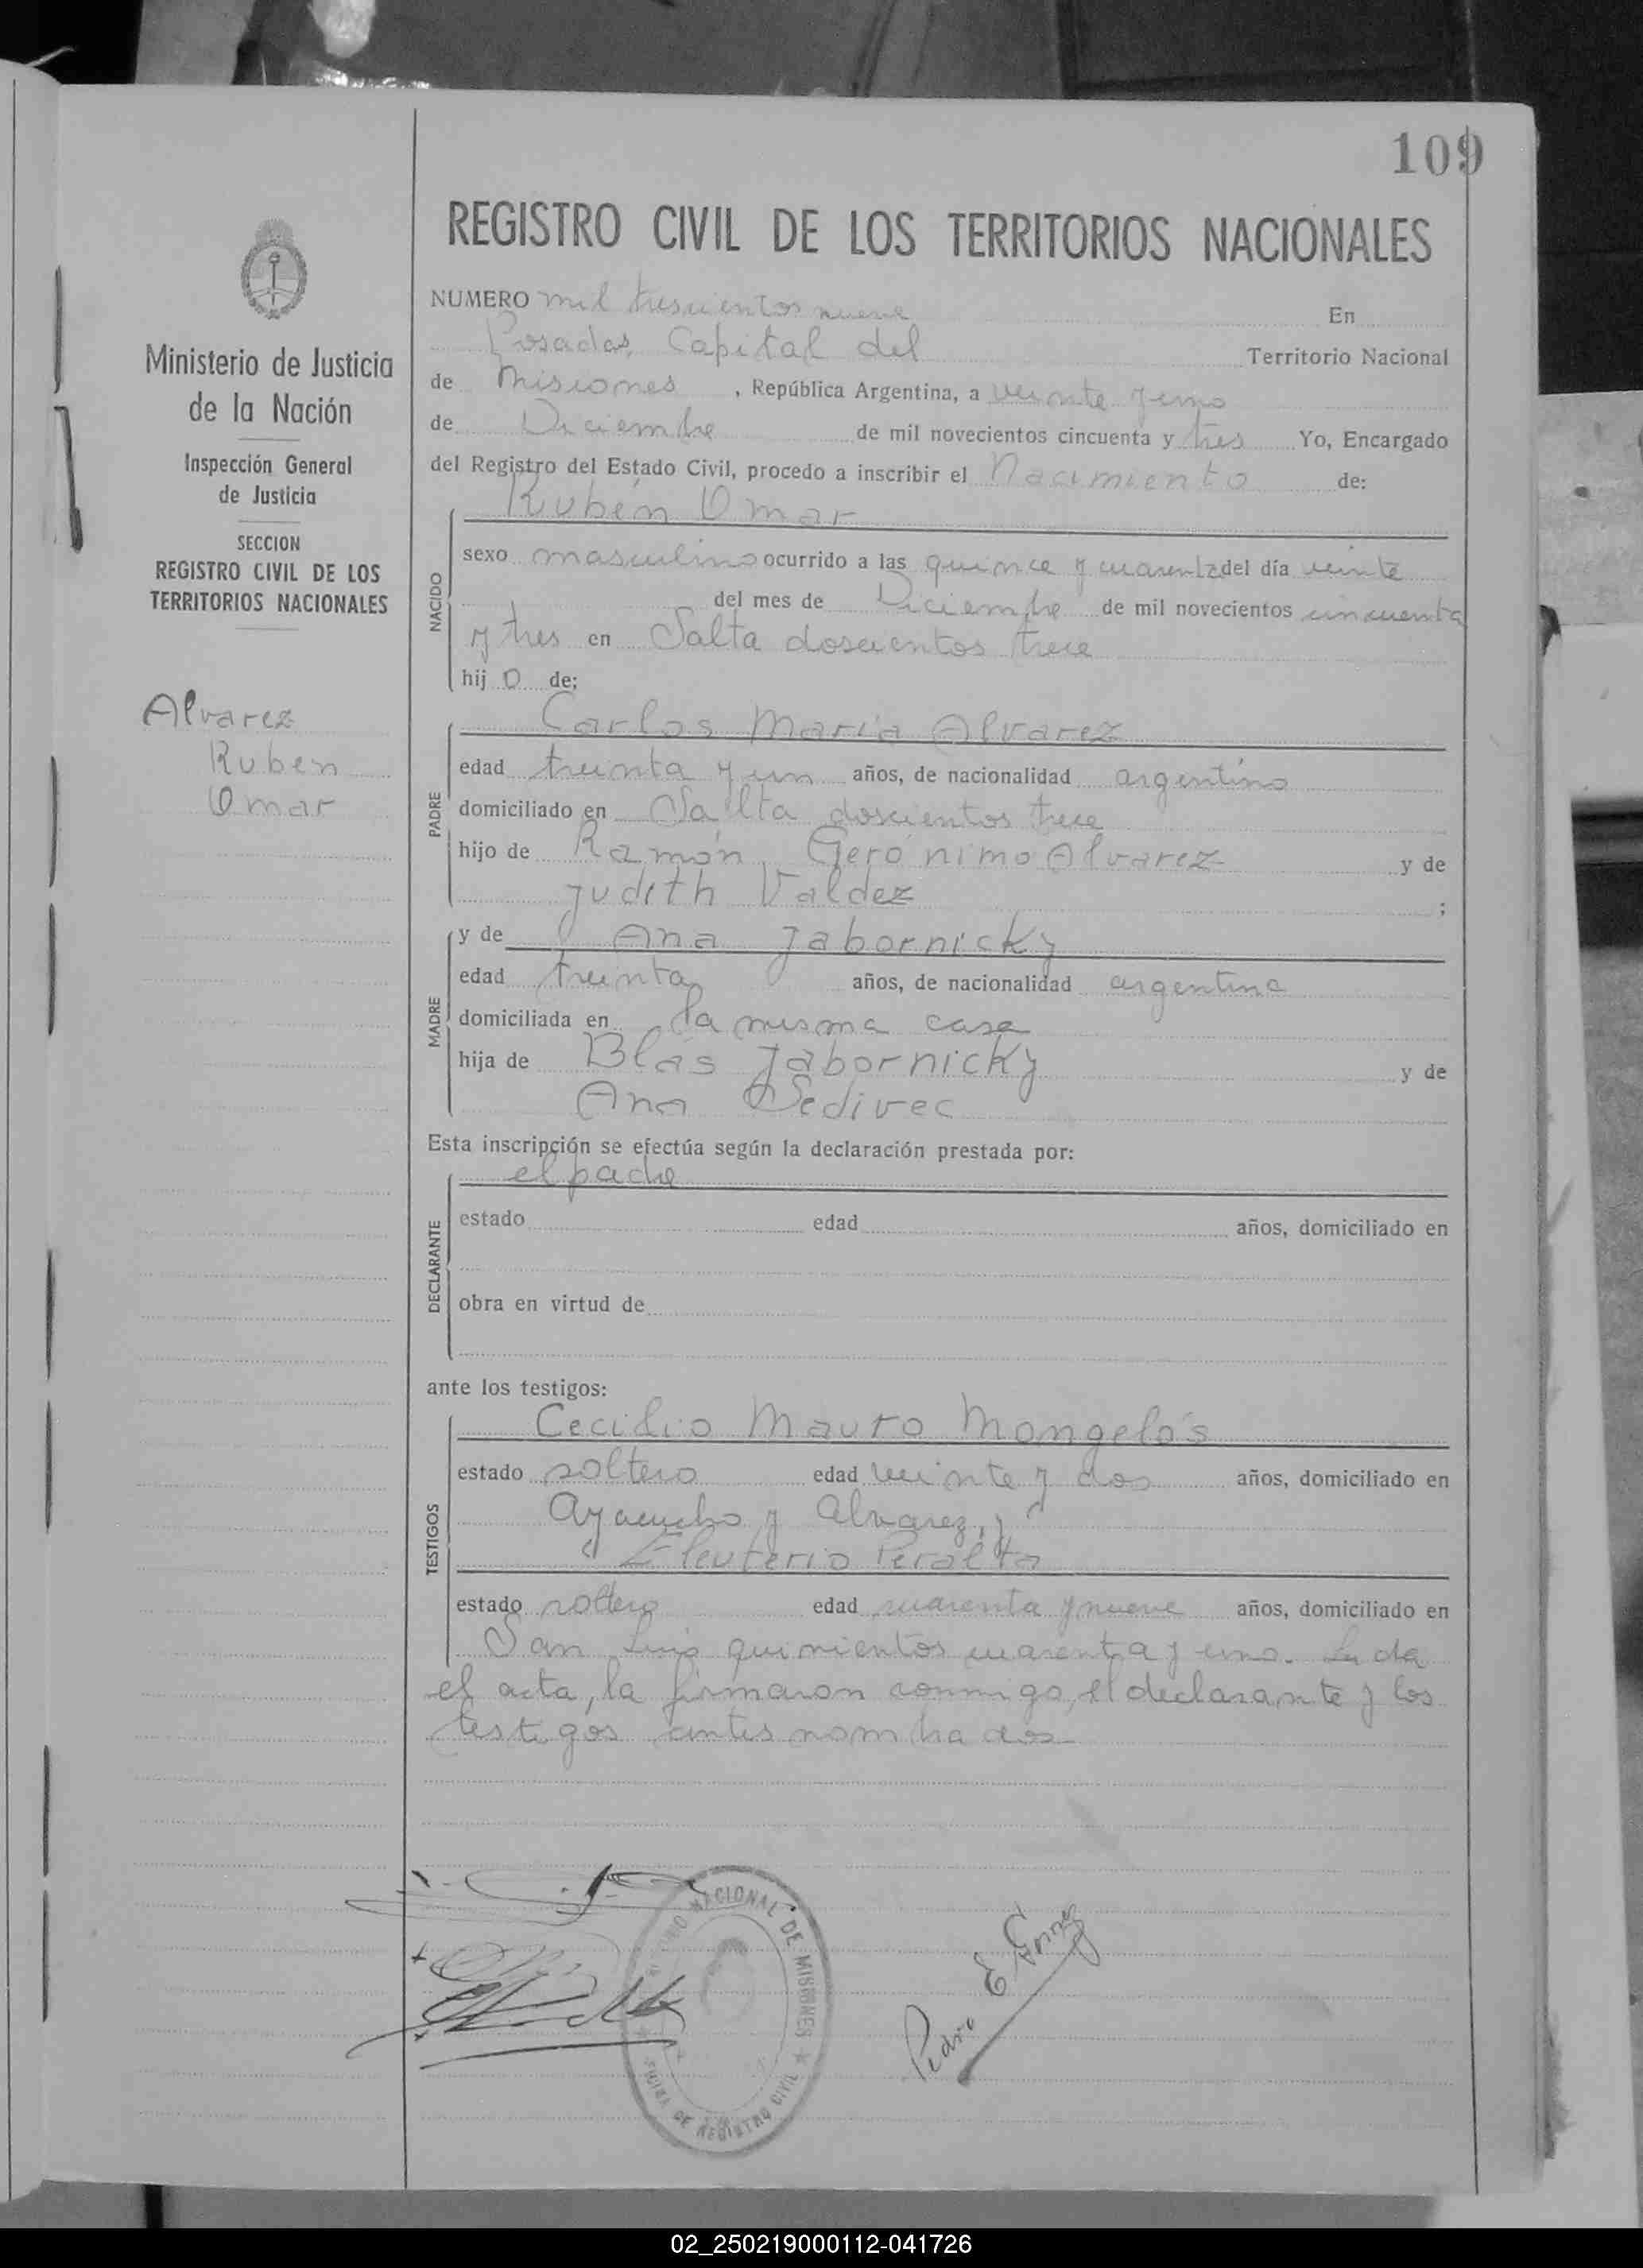 109
REGISTRO CIVIL DE LOS TERRITORIOS NACIONALES
Ministerio de Justicia
de la Nación
Inspección General
de Justicia
SECCION
REGISTRO CIVIL DE LOS
TERRITORIOS NACIONALES
Alvarez
Ruben
Omar
NUMERO mil trescientos nueve En
Posadas, Capital del Territorio Nacional
de Misiones, República Argentina, a veinte y uno
de Diciembre de mil novecientos cincuenta y tres Yo, Encargado
del Registro del Estado Civil, procedo a inscribir el Nacimiento de:
Rubén Omar
NACIDO
sexo masculino ocurrido a las quince y cuarenta del día veinte
del mes de Diciembre de mil novecientos cincuenta
y tres en Salta doscientos trece
hij o de:
Carlos Maria Alvarez
PADRE
edad treinta y un años, de nacionalidad argentino
domiciliado en Salta doscientos trece
hijo de Ramón Gerónimo Alvarez y de
Judith Valdez ;
y de Ana Jabornicky
MADRE
edad treinta años, de nacionalidad argentina
domiciliada en la misma casa
hija de Blas Jabornicky y de
Ana Sedivec
Esta inscripción se efectúa según la declaración prestada por:
el padre
DECLARANTE
estado edad años, domiciliado en
obra en virtud de
ante los testigos:
Cecilio Mauro Mongelós
TESTIGOS
estado soltero edad veinte y dos años, domiciliado en
Ayacucho y Alvarez, y
Eleuterio Peralta
estado soltero edad cuarenta y nueve años, domiciliado en
San Luis quinientos cuarenta y uno. Leida
el acta, la firmaron conmigo, el declarante y los
testigos antes nombrados
NACIONAL DE MISIONES
DE REGISTRO CIVIL
Pedro E
02_250219000112-041726